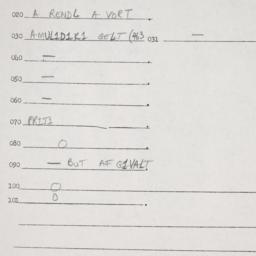 020 A RENDL A VORT
030 AMUL1D1K1 GELT (463 031 —
040 —
050 —
060 —
070 PRIT1
080 O
090 — BUT AF G1VALT
100 O
101 O